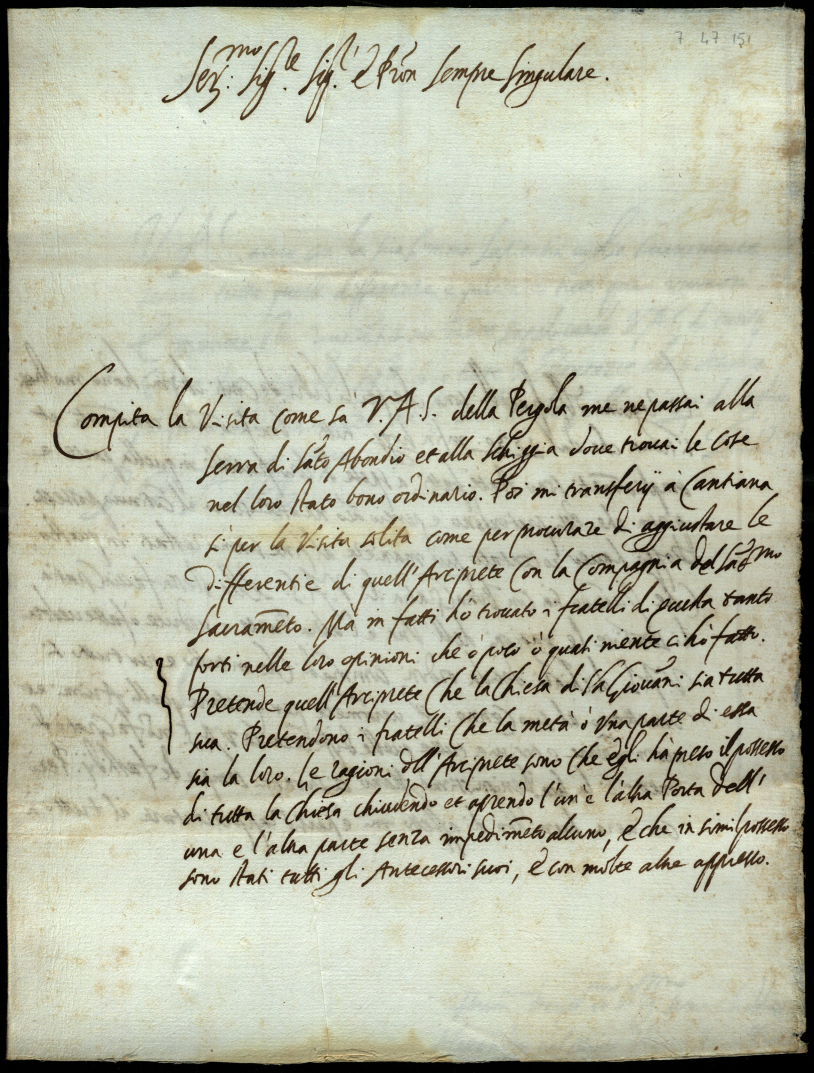 7 47 151
Ser.mo Sig.re Sig.r e Pron sempre singulare.
Compita la Visita come sà V. A. S. della Pergola me ne passai alla
serra di Sãto Abondio et alla Schiggia dove trovai le cose
nel loro stato bono ordinario. Poi mi transferÿ à Cantiana
sì per la Visita solita come per procurare di aggiustare le
differentie di quell'Arciprete con la Compagnia del Sãt.mo
Sacramẽto. Ma in fatti hò trovato i fratelli di quella tanto
forti nelle loro opinioni che ò poco ò quasi niente ci hò fatto.
Pretende quell'Arciprete che la Chiesa di Sã Giovãni sia tutta
sua. Pretendono i fratelli che la metà ò una parte di essa
sia la loro. Le ragioni dell'Arciprete sono che egli hà preso il possesso
di tutta la Chiesa chiudendo et aprendo l'un'e l'altra Porta dell'
una e l'altra parte senza impedimẽto alcuno, e che in simil possesso
sono stati tutti gli Antecessori suoi, e con molte altre appresso.